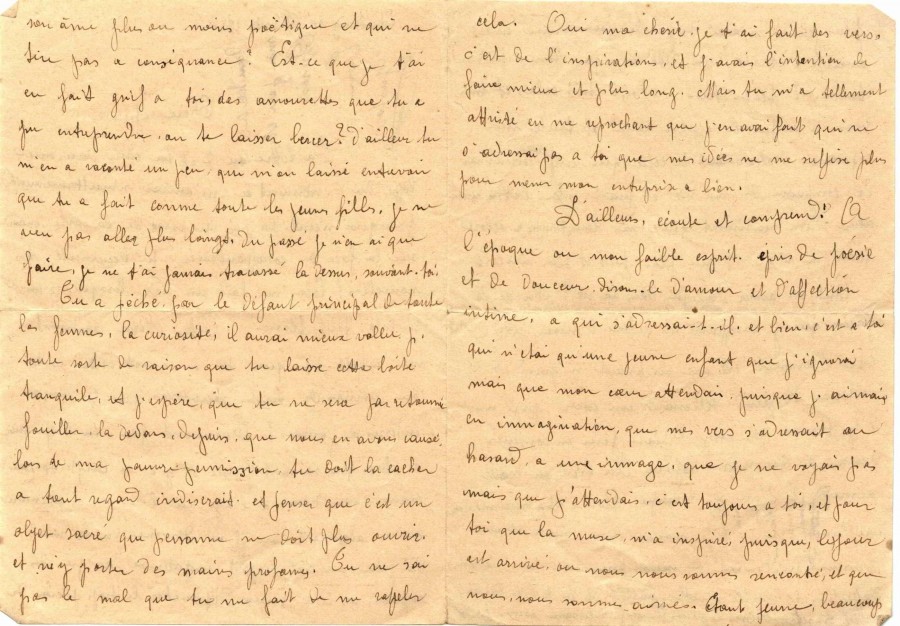 son âme plus ou moins poëtique et qui ne
tire pas a conséquance? Est-ce que je t'ai
en fait grif a toi, des amourettes que tu a
pu entreprendre, ou te laisser bercer? d'ailleur tu
m'en a raconté un peu, qui m'on laissé entrevoir
que tu a fait comme toute les jeunes filles, je ne
veu pas aller plus loingt. Du passé je n'en ai que
faire, je ne t'ai jamais tracassé la dessus, souvient-toi
Tu a péché par le défaut principal de toute
les femmes, la curiosité, il aurai mieux vallu p.
toute sorte de raison que tu laisse cette boite
tranquile, et j'espère, que tu ne sera pas retourné
fouiller, la dedans, depuis, que nous en avons causé,
lors de ma permission, tu doit la cacher
a tout regard indiscrait. et penser que c'est un
objet sacré que personne ne doit plus ouvrir.
et n'y porter des mains profanes. Tu ne sai
pas le mal que tu me fait de me rappeler
cela. Oui ma chérie, je t'ai fait des vers.
c'est de l'inspirations, et j'avais l'intention de
faire mieux et plus long. Mais tu m'a tellement
attristé en me reprochant que j'en avai fait qui ne
s'adressai pas a toi que mes idées ne me suffise plus
pour mener mon entreprise a bien.
D'ailleurs, écoute et comprend! A
l'époque ou mon faible esprit. épris de poésie
et de douceur, disons-le d'amour et d'affection
intime, a qui s'adressai-t-il, et bien, c'est a toi
qui n'étai qu'une jeune enfant que j'ignorai
mais que mon cœur attendai. puisque j. aimais
en immagination, que mes vers s'adressait au
hasard, a une immage, que je ne voyais pas
mais que j'attendais, c'est toujours a toi, et pour
toi que la muse, m'a inspiré, puisque, le jour
est arrivé, ou nous nous sommes rencontré, et que
nous, nous sommes aimés. Etant jeune, beaucoup